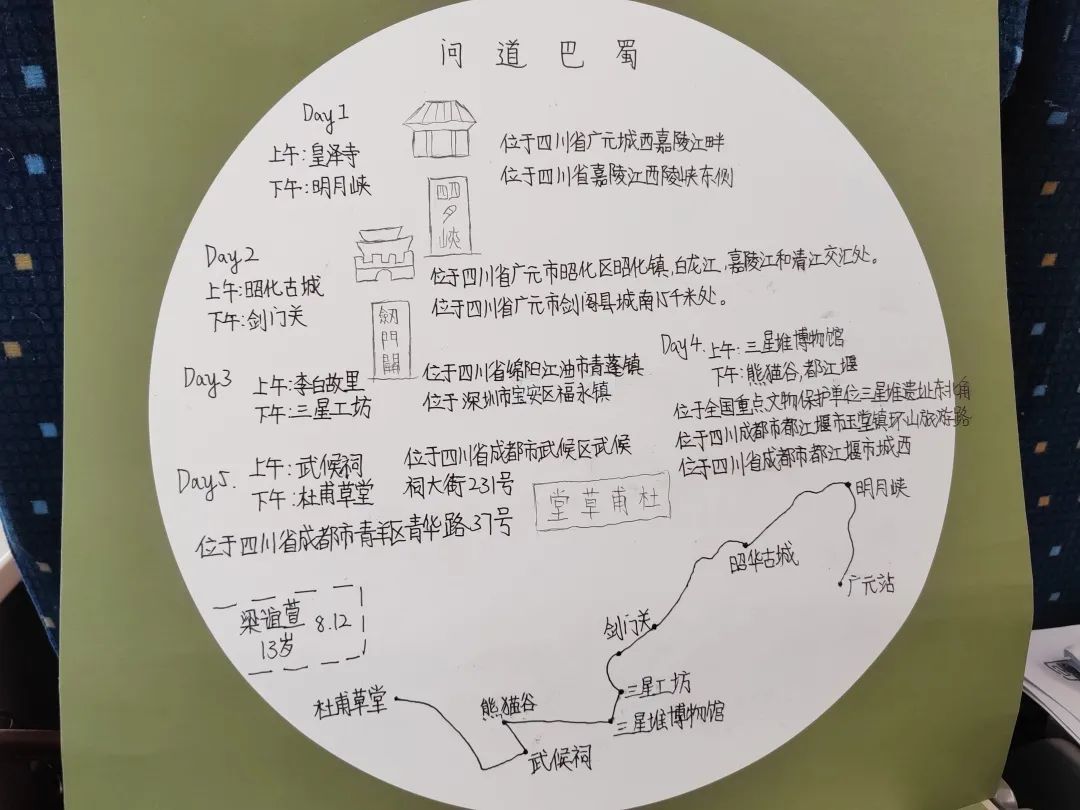 问道巴蜀
Day1
上午:皇泽寺
下午:明月峡
位于四川省广元城西嘉陵江畔
位于四川省嘉陵江西陵峡东侧
峡
Day2
上午:昭化古城
下午:剑门关
位于四川省广元市昭化区昭化镇,白龙江,嘉陵江和清江交汇处。
位于四川省广元市剑阁县城南15千米处。
劒門關
Day3
上午:李白故里
下午:三星工坊
位于四川省绵阳江油市青莲镇
位于深圳市宝安区福永镇
Day4.
上午:三星堆博物馆
下午:熊猫谷,都江堰
位于全国重点文物保护单位三星堆遗址东北角
位于四川成都市都江堰市玉堂镇环山旅游路
位于四川省成都市都江堰市城西
Day5.
上午:武候祠
下午:杜甫草堂
位于四川省成都市武候区武候
祠大街231号
位于四川省成都市青羊区青华路37号
堂草甫杜
梁谊萱 8.12
13岁
明月峡
昭华古城
广元站
剑门关
三星工坊
三星堆博物馆
熊猫谷
武候祠
杜甫草堂